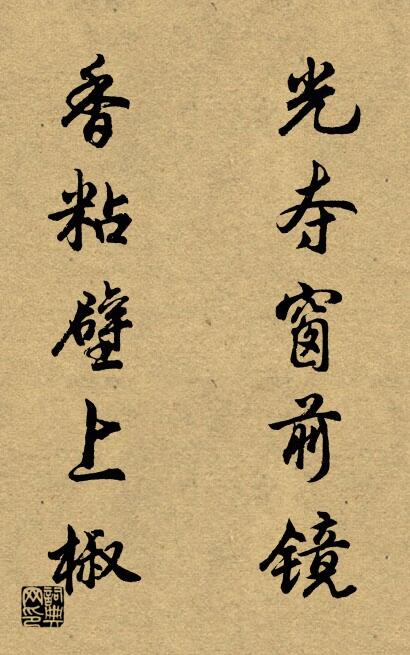 光夺窗前镜
香粘壁上椒
詞典网印